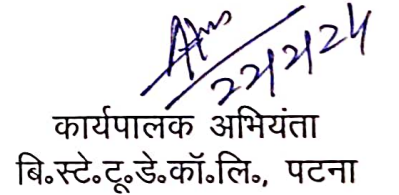 22/2/24
कार्यपालक अभियंता
बि॰स्टे॰टू॰डे॰कॉ॰लि॰, पटना